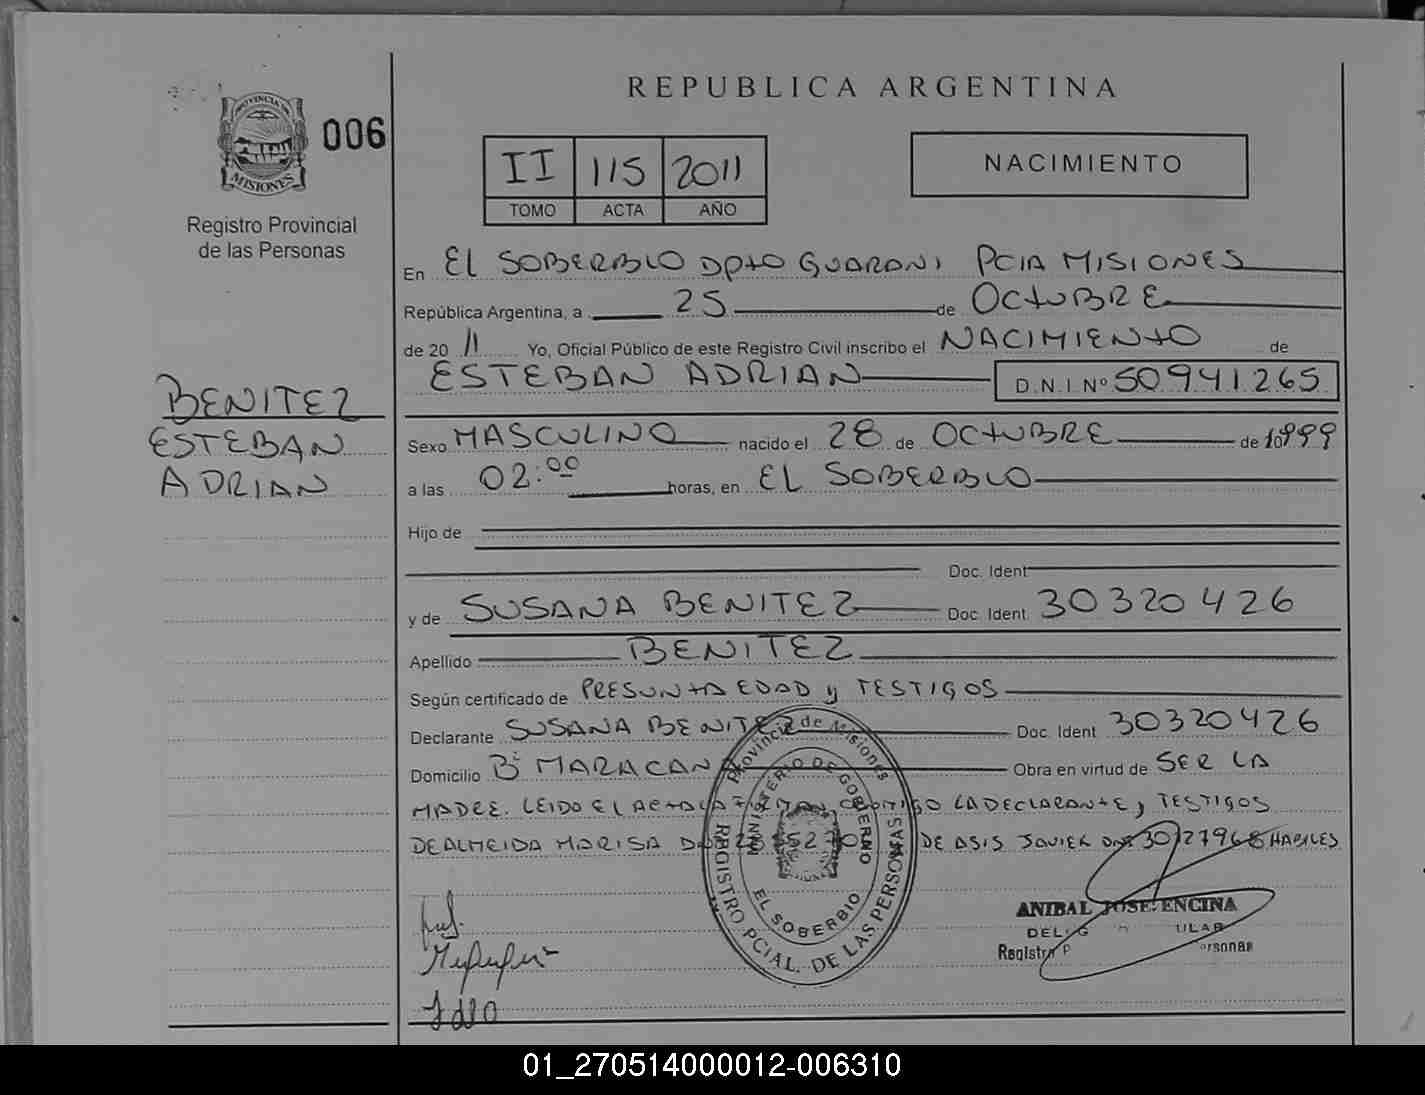 REPUBLICA ARGENTINA
PROVINCIA DE
MISIONES
006
II 115 2011
TOMO ACTA AÑO
NACIMIENTO
Registro Provincial
de las Personas
En EL SOBERBIO DPTO GUARANI PCIA MISIONES
República Argentina, a 25 de OCTUBRE
de 20 11 Yo, Oficial Público de este Registro Civil inscribo el NACIMIENTO de
ESTEBAN ADRIAN D.N.I.Nº 50.941.265
BENITEZ
ESTEBAN
ADRIAN
Sexo MASCULINO nacido el 28 de OCTUBRE de 1999
a las 02:00 horas, en EL SOBERBIO
Hijo de
Doc. Ident
y de SUSANA BENITEZ Doc. Ident 30320426
Apellido BENITEZ
Según certificado de PRESUNTA EDAD y TESTIGOS
Declarante SUSANA BENITEZ Doc. Ident 30320426
Domicilio Bº MARACAN Obra en virtud de SER LA
MADRE. LEIDO EL ACTA LA FIRMAN CONMIGO LA DECLARANTE, TESTIGOS
DEALMEIDA MARISA DE ASIS JAVIER DNI 30127968 HABILES
Provincia de Misiones
MINISTERIO DE GOBIERNO
EL SOBERBIO
REGISTRO PCIAL. DE LAS PERSONAS
ANIBAL JOSE ENCINA
01_270514000012-006310